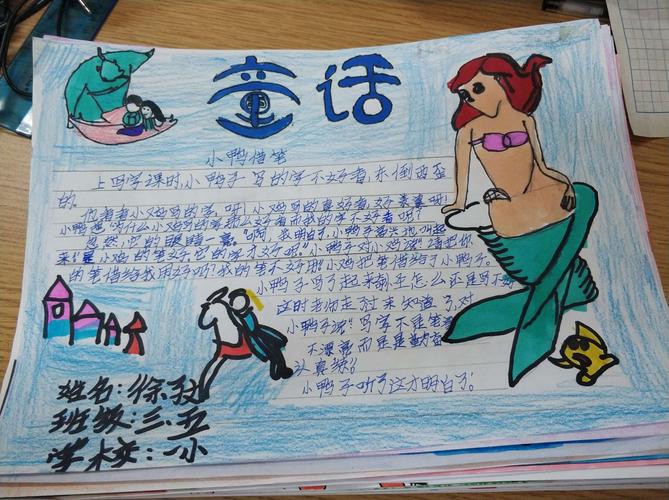 童话
小鸭借笔
上写字课时,小鸭子写的字不好看,东倒西歪
的。
他看看小鸡写的字,呀!小鸡写的真好看,好羡慕呀!
小鸭想:为什么小鸡写的字那么好看而我的字不好看呢?
忽然,它的眼睛一亮。"啊,我明白了,小鸭子高兴地叫起
来:"是小鸡的笔好,它的字才好呀。"小鸭子对小鸡说:"请把你
的笔借给我用好吗?我的笔不好用"小鸡把笔借给了小鸭子。
小鸭子写了起来,刷车怎么还是写不好
这时老师走过来知道了,对
小鸭子说:"写字不是笔
不漂亮而是是
认真练。"
小鸭子听了这才明白了。
姓名:徐
班级:三.五
学校:一小